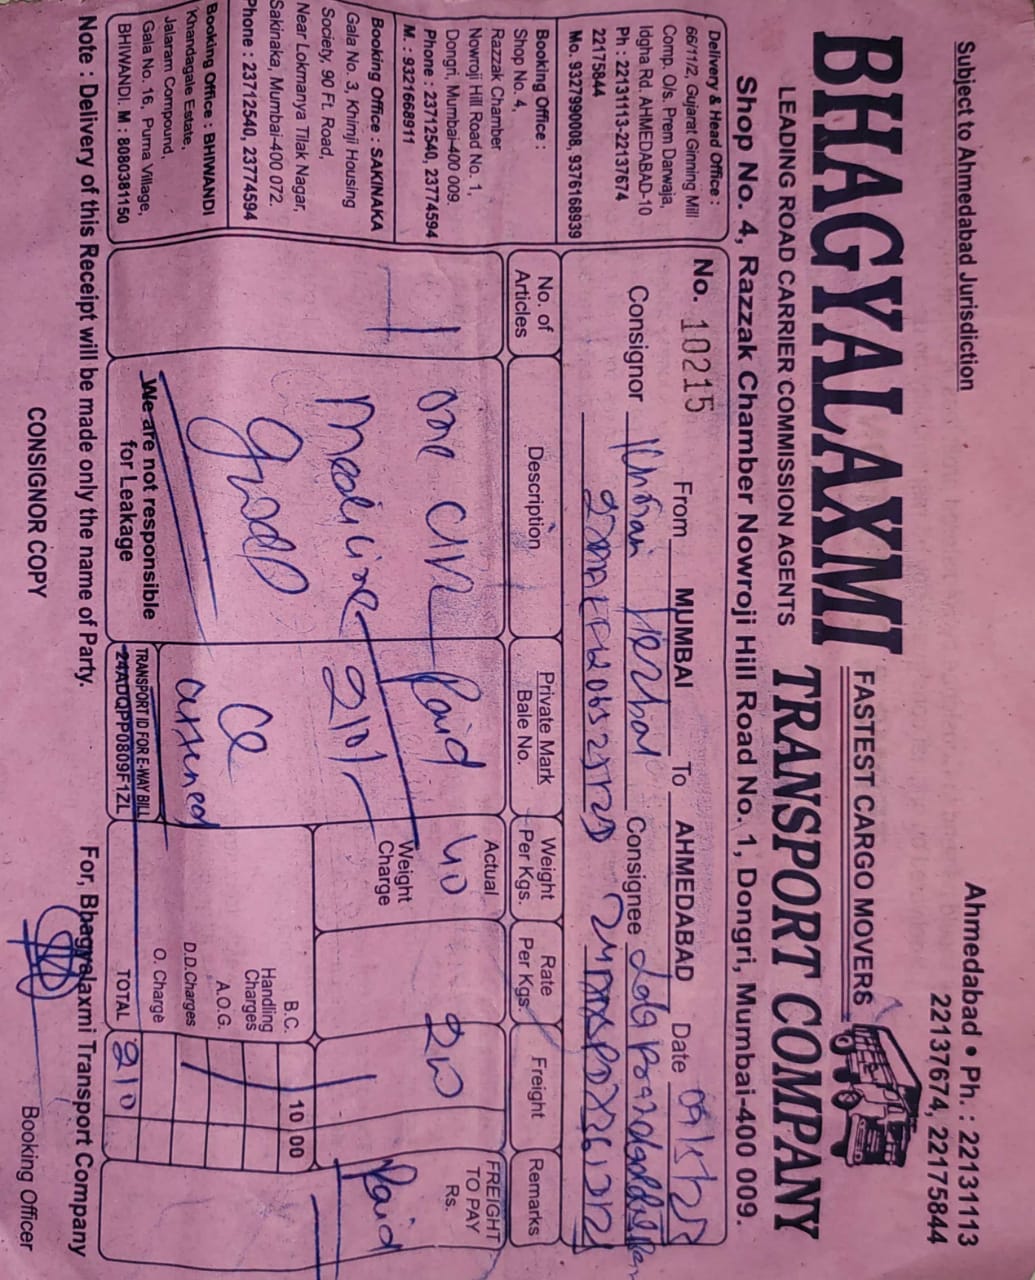 Subject to Ahmedabad Jurisdiction
Ahmedabad • Ph. : 22131113
22137674, 22175844
BHAGYALAXMI
FASTEST CARGO MOVERS
TRANSPORT COMPANY
LEADING ROAD CARRIER COMMISSION AGENTS
Shop No. 4, Razzak Chamber Nowroji Hill Road No. 1, Dongri, Mumbai-400 009.
Delivery & Head Office :
66/11/2, Gujarat Ginning Mill
Comp. O/s. Prem Darwaja,
Idgha Rd. AHMEDABAD-10
Ph : 22131113-22137674
22175844
Mo. 9327990008, 9376168939
Booking Office :
Shop No. 4,
Razzak Chamber
Nowroji Hill Road No. 1,
Dongri, Mumbai-400 009.
Phone : 23712540, 23774594
M. : 9321668911
Booking Office : SAKINAKA
Gala No. 3, Khimji Housing
Society, 90 Ft. Road,
Near Lokmanya Tilak Nagar,
Sakinaka, Mumbai-400 072.
Phone : 23712540, 23774594
Booking Office : BHIWANDI
Khandagale Estate,
Jalaram Compound,
Gala No. 16, Purna Village,
BHIWANDI. M : 8080381150
No. 10215 From MUMBAI To AHMEDABAD Date
Consignor Consignee
No. of Articles
Description
Private Mark Bale No.
Weight Per Kgs.
Rate Per Kgs.
Freight
Remarks
1
one
Medicine
Good
Paid
210/-
Actual
40
Weight Charge
FREIGHT TO PAY Rs.
Paid
B.C. 10 00
Handling Charges
A.O.G.
D.D.Charges
O. Charge
TOTAL 210
We are not responsible
for Leakage
TRANSPORT ID FOR E-WAY BILL
24ADQPP0809F1ZL
Note : Delivery of this Receipt will be made only the name of Party.
For, Bhagyalaxmi Transport Company
CONSIGNOR COPY
Booking Officer